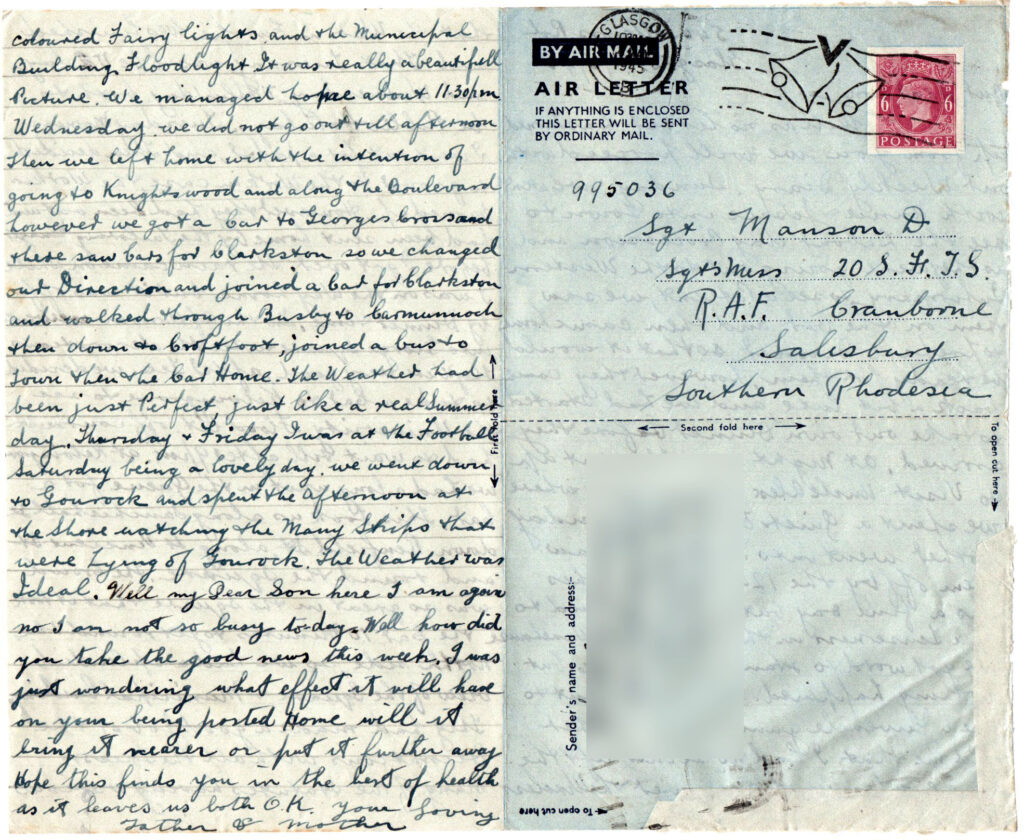 coloured Fairy lights and the Municipal
Building Floodlight It was really a beautifull
Picture. We managed home about 11.30pm
Wednesday we did not go out till afternoon
Then we left home with the intention of
going to Knightswood and along the Boulevard
however we got a Car to Georges Cross and
there saw Cars for Clarkston so we changed
our Direction and joined a Car for Clarkston
and walked through Busby to Carmunnock
then down to Croftfoot, joined a bus to
Town then the Car Home. The Weather had
been just Perfect, just like a real Summer
day. Thursday & Friday I was at the Football
Saturday being a lovely day, we went down
to Gourock and spent the afternoon at
the Shore watching the Many Ships that
were Lying of Gourock. The Weather was
Ideal. Well my Dear Son here I am again
no I am not so busy to-day. Well how did
you take the good news this week, I was
just wondering what effect it will have
on your being posted Home will it
bring it nearer or put it further away
Hope this finds you in the best of health
as it leaves us both O.K. Your loving
Father & Mother
First fold here
GLASGOW
1945
BY AIR MAIL
AIR LETTER
IF ANYTHING IS ENCLOSED
THIS LETTER WILL BE SENT
BY ORDINARY MAIL.
V
6 6
POSTAGE
995036
Sgt Manson D.
Sgt's Mess 20 S.F.T.S.
R.A.F. Cranborne
Salisbury
Southern Rhodesia
Second fold here
To open cut here
Sender's name and address:-
To open cut here